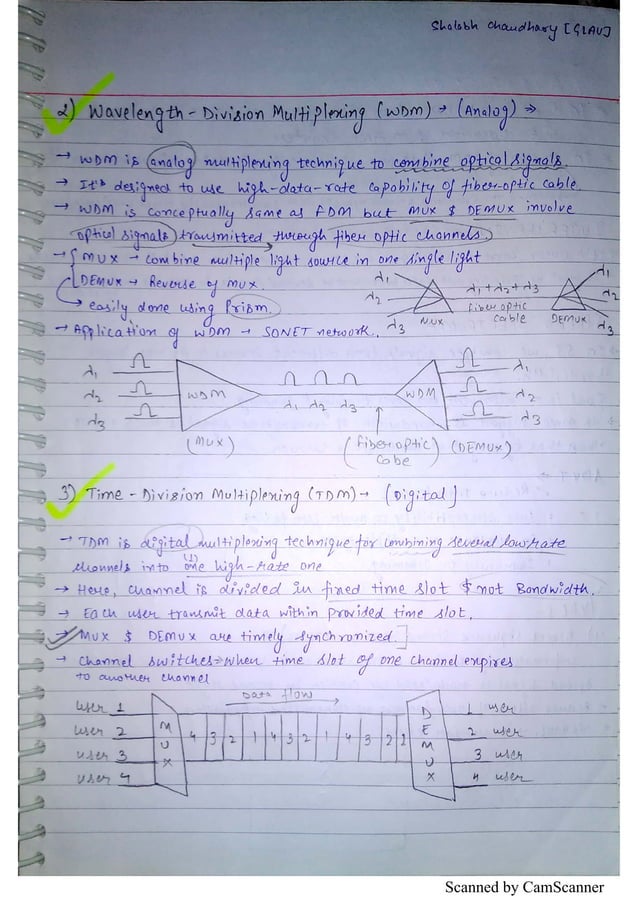 Shalabh Chaudhary [GLAU]
2) Wavelength-Division Multiplexing (WDM) → (Analog) ⇒
→ WDM is analog multiplexing technique to combine optical signals.
→ It's designed to use high-data-rate capability of fiber-optic cable.
→ WDM is conceptually same as FDM but MUX & DEMUX involve
optical signals transmitted through fiber optic channels.
→ MUX → combine multiple light source in one single light
DEMUX → Reverse of MUX.
→ easily done using Prism.
→ Application of WDM → SONET network.
λ1 λ1+λ2+λ3 λ1
λ2 fiber optic λ2
λ3 MUX cable DEMUX λ3
λ1 λ1
λ2 WDM λ1 λ2 λ3 WDM λ2
λ3 λ3
(MUX) (fiber optic) (DEMUX)
cabe
3) Time-Division Multiplexing (TDM) → [Digital]
→ TDM is digital multiplexing technique for combining several low rate
channels into one (1) high-rate one
→ Here, channel is divided in fixed time slot & not Bandwidth.
→ Each user transmit data within provided time slot.
→ MUX & DEMUX are timely synchronized.]
→ Channel switches → when time slot of one channel expires
to another channel
Data flow
user 1 1 user
user 2 2 user
user 3 3 user
user 4 4 user
MUX 4 3 2 1 4 3 2 1 4 3 2 1 DEMUX
Scanned by CamScanner